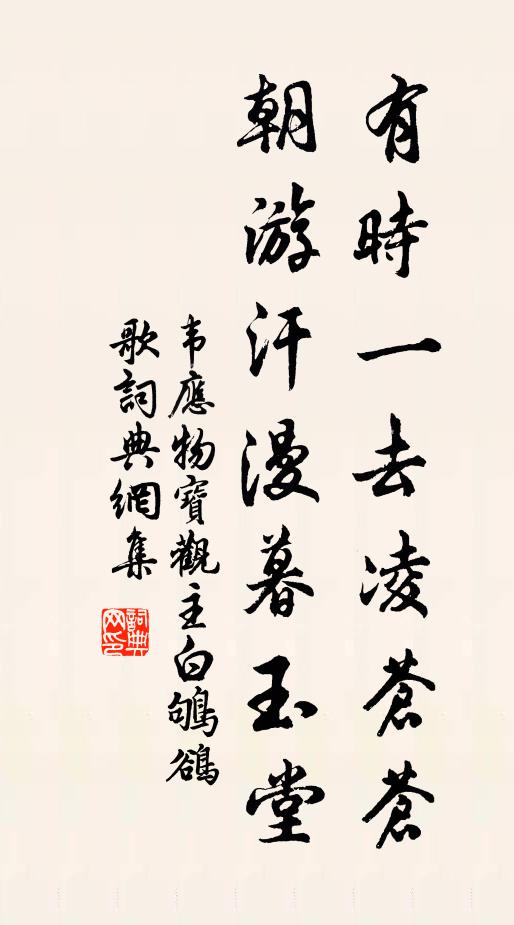 有時一去凌蒼蒼
朝游汗漫暮玉堂
韦應物寶觀主白鴝鵒
歌詞典網集
詞典网印